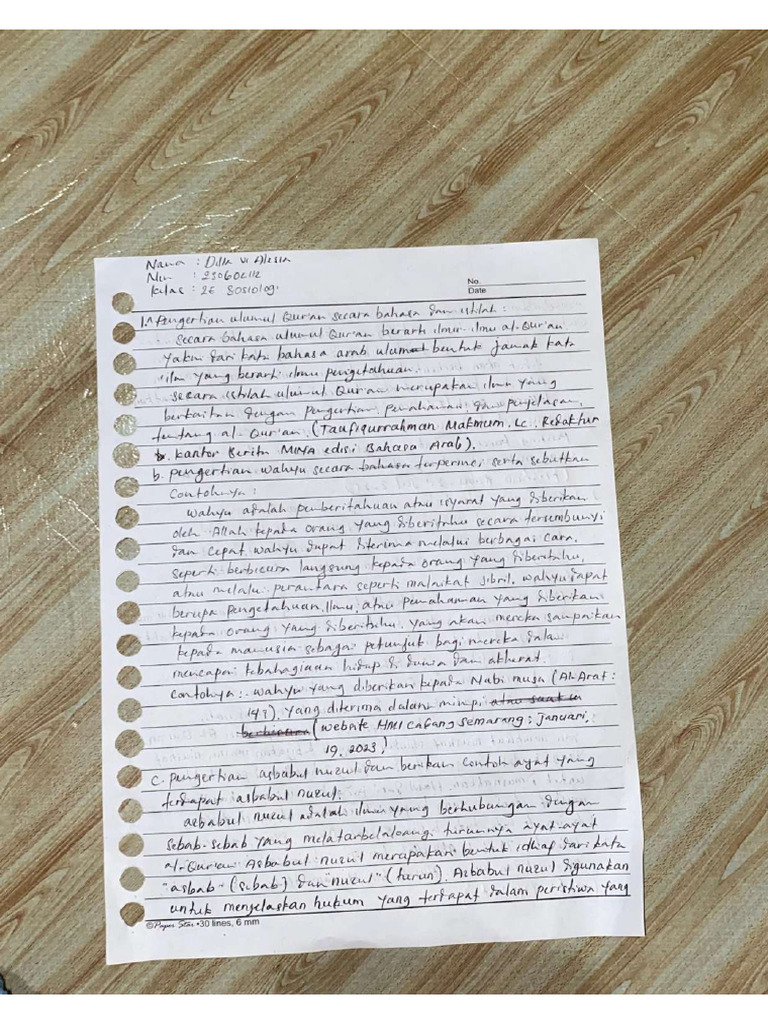 Nama : Dilla Vi Alesia
Nim : 230602112
Kelas : 2E Sosiologi
No.
Date
1. a Pengertian ulumul Qur'an secara bahasa dan istilah :
secara bahasa ulumul Qur'an berarti ilmu-ilmu al-Qur'an
yaitu dari kata bahasa arab ulumul bentuk jamak kata
ilm yang berarti ilmu pengetahuan.
secara istilah ulumul Qur'an merupakan ilmu yang
berkaitan dengan pengertian, pemahaman, dan penjelasan
tentang al-Qur'an. (Taufiqurrahman Makmum. Lc. Redaktur
kantor Berita MINA edisi Bahasa Arab).
b. pengertian wahyu secara bahasa serta sebutkan
Contohnya :
Wahyu adalah pemberitahuan atau isyarat yang diberikan
oleh Allah kepada orang yang diberitahu secara tersembunyi
dan cepat wahyu dapat diterima melalui berbagai cara.
seperti berbicara langsung kepada orang yang diberitahu,
atau melalui perantara seperti malaikat jibril. wahyu dapat
berupa pengetahuan, ilmu, atau pemahaman yang diberikan
kepada orang yang diberitahu, yang akan mereka sampaikan
kepada manusia sebagai petunjuk bagi mereka dalam
mencapai kebahagiaan hidup di dunia dan akhirat.
Contohnya : wahyu yang diberikan kepada Nabi musa (Al-Araf :
), yang diterima dalam mimpi atau saat
berbicara (website HMI cabang semarang : januari,
19, 2023.)
c. pengertian asbabul nuzul dan berikan contoh ayat yang
terdapat asbabul nuzul.
asbabul nuzul adalah ilmu yang berhubungan dengan
sebab-sebab yang melatarbelakangi turunnya ayat-ayat
al-Qur'an. Asbabul nuzul merupakan bentuk idhaf dari kata
"asbab" (sebab) dan "nuzul" (turun). Asbabul nuzul digunakan
untuk menjelaskan hukum yang terdapat dalam peristiwa yang
©Paper Star •30 lines, 6 mm